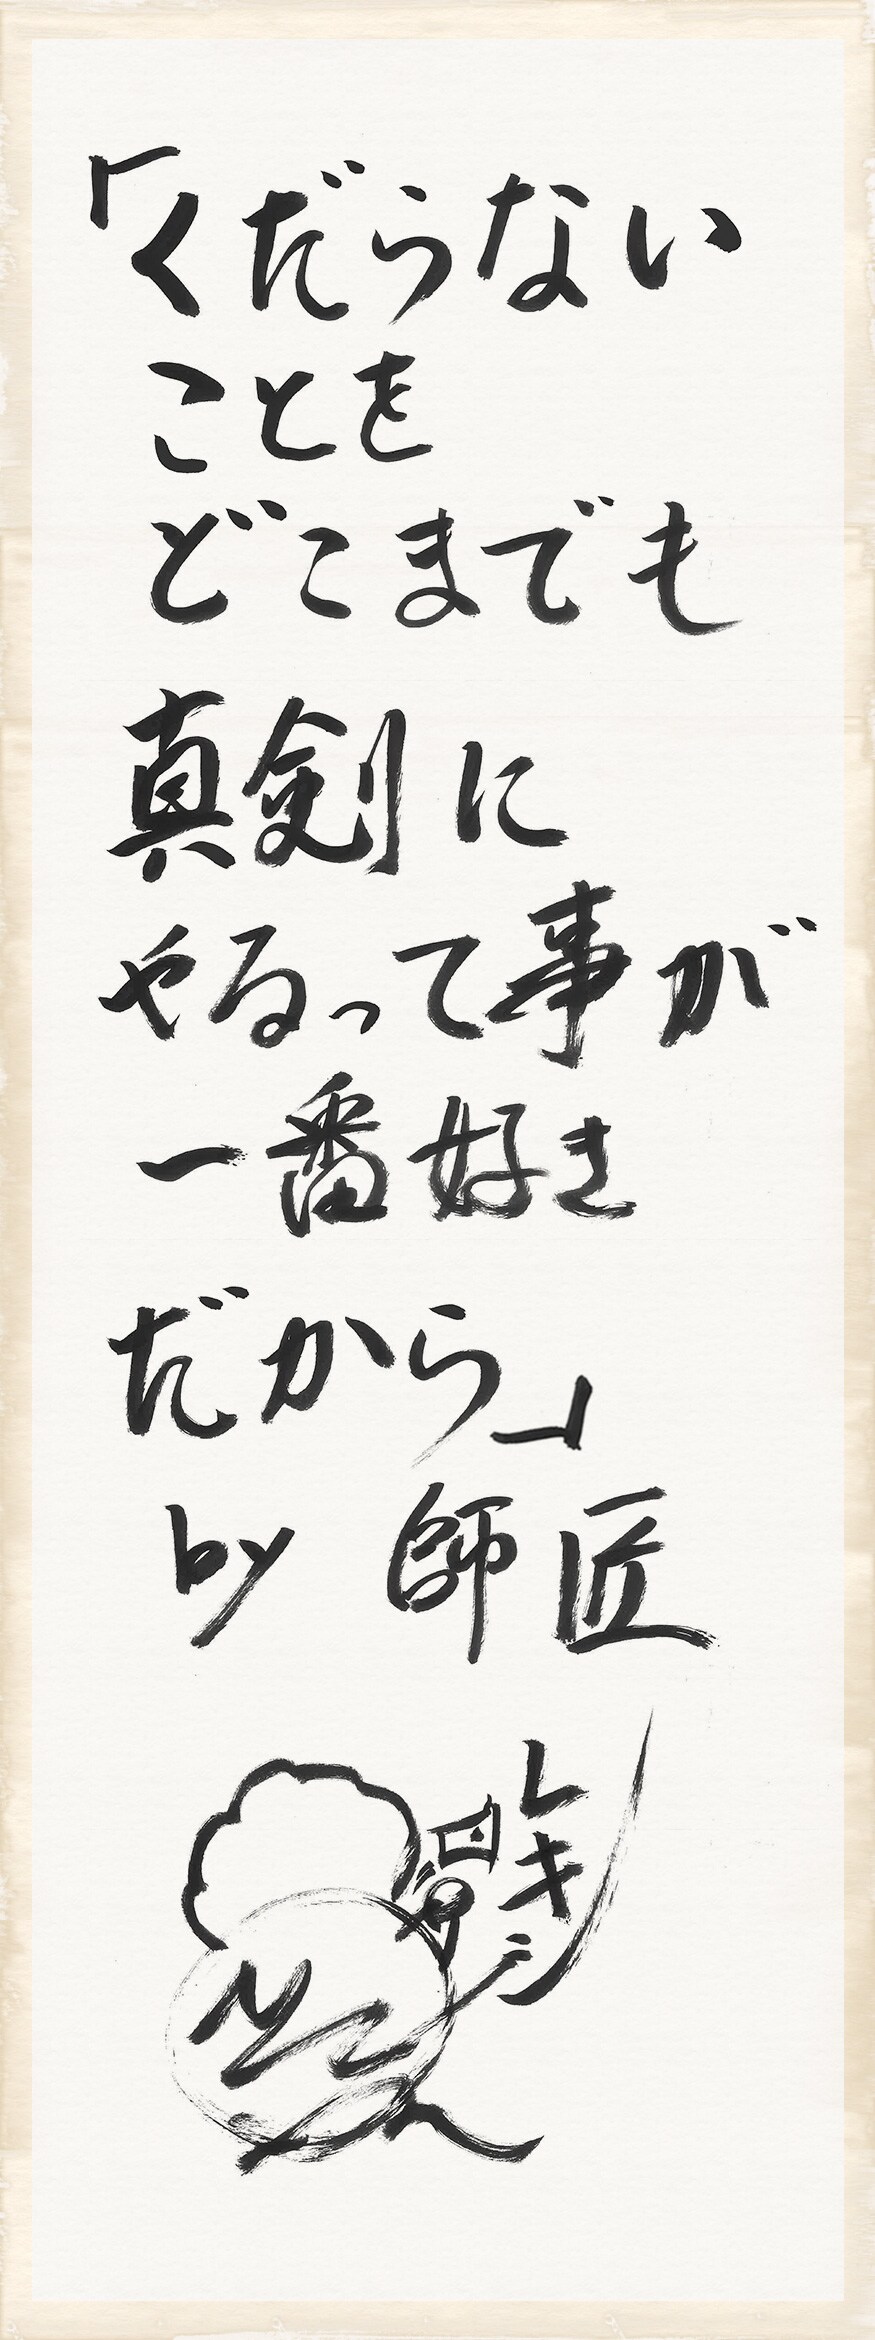 「くだらない
ことを
どこまでも
真剣に
やるって事が
一番好き
だから」
by 師匠
レキシ